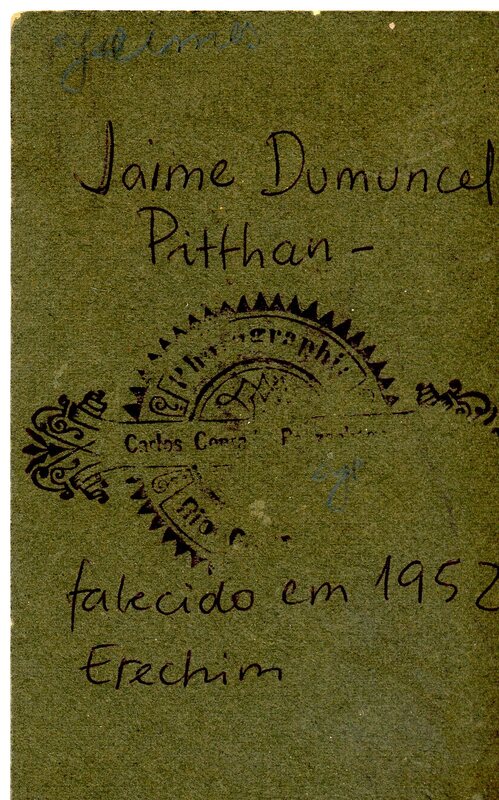 Jaime Dumuncel
Pitthan -
Photographi
Carlos
Rio
falecido em 1952
Erechim